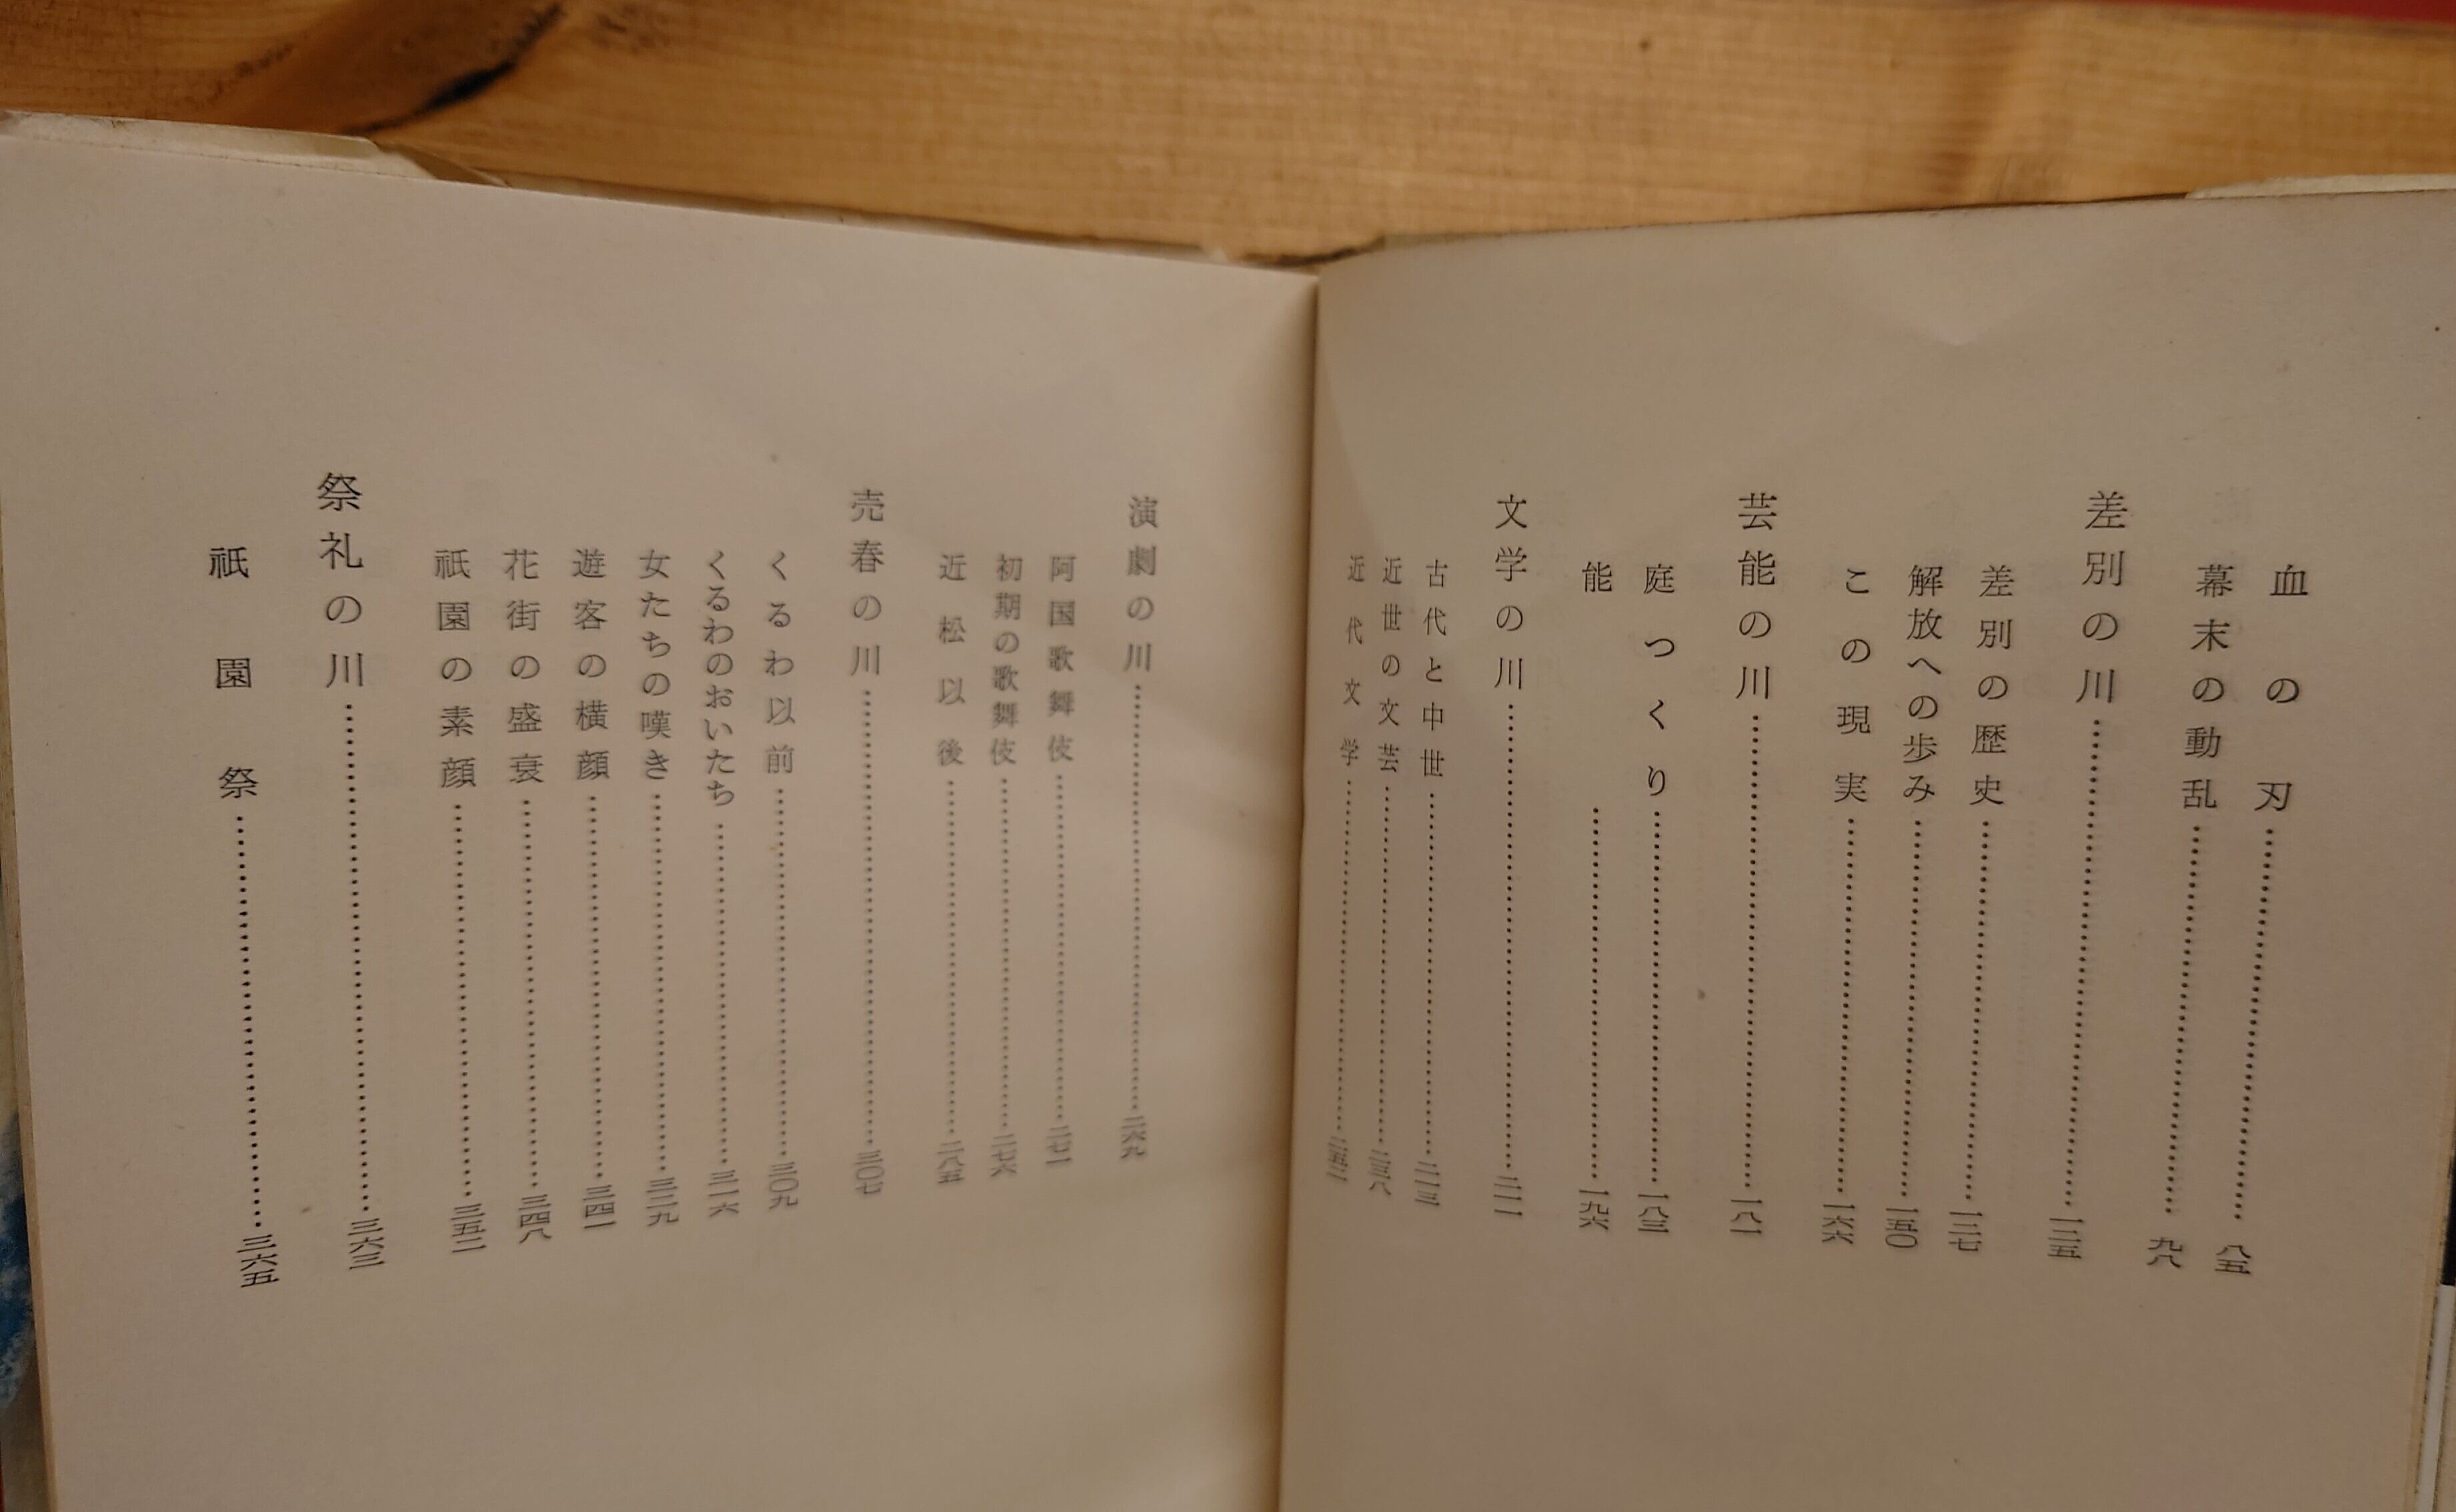 血の刃……八五
幕末の動乱……九八
差別の川……一二五
差別の歴史……一二七
解放への歩み……一五〇
この現実……一六六
芸能の川……一八一
庭つくり……一八三
能……一九六
文学の川……二一一
古代と中世……二一三
近世の文芸……二三八
近代文学……二五二
演劇の川……二六九
阿国歌舞伎……二七一
初期の歌舞伎……二七六
近松以後……二八五
売春の川……三〇七
くるわ以前……三〇九
くるわのおいたち……三一六
女たちの嘆き……三二九
遊客の横顔……三四一
花街の盛衰……三四八
祇園の素顔……三五二
祭礼の川……三六三
祇園祭……三六五